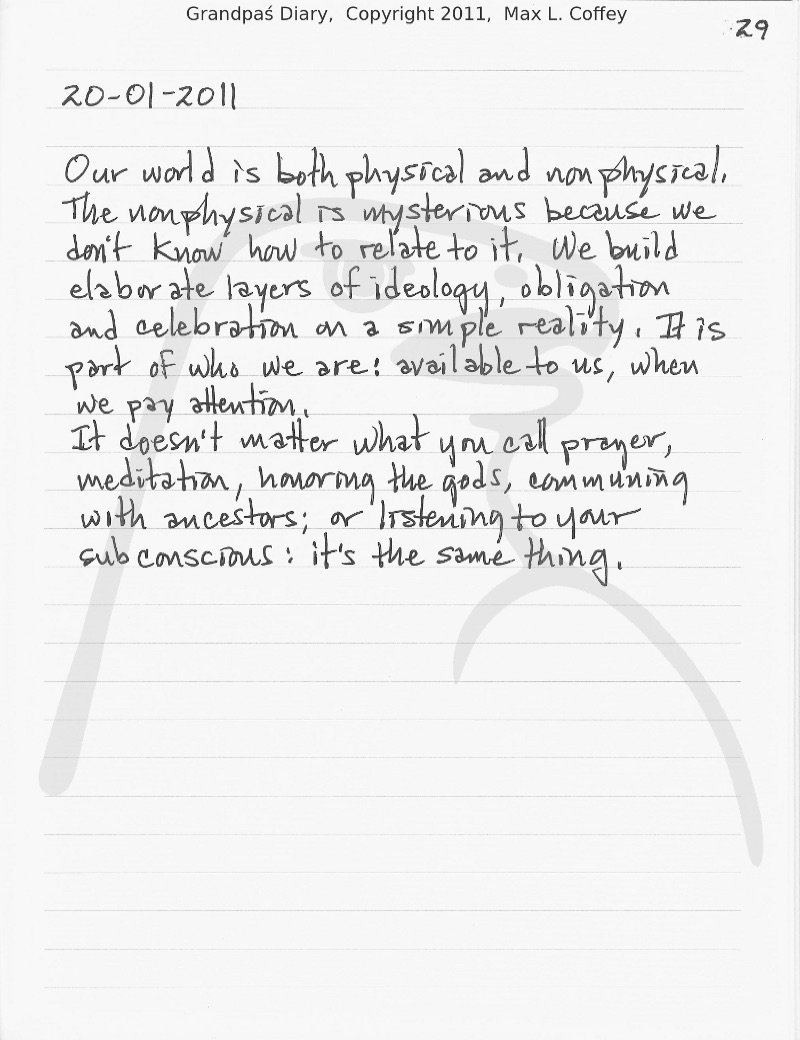 Grandpaś Diary, Copyright 2011, Max L. Coffey
29
20-01-2011
Our world is both physical and nonphysical.
The nonphysical is mysterious because we
don't know how to relate to it. We build
elaborate layers of ideology, obligation
and celebration on a simple reality. It is
part of who we are: available to us, when
we pay attention.
It doesn't matter what you call prayer,
meditation, honoring the gods, communing
with ancestors; or listening to your
subconscious: it's the same thing.